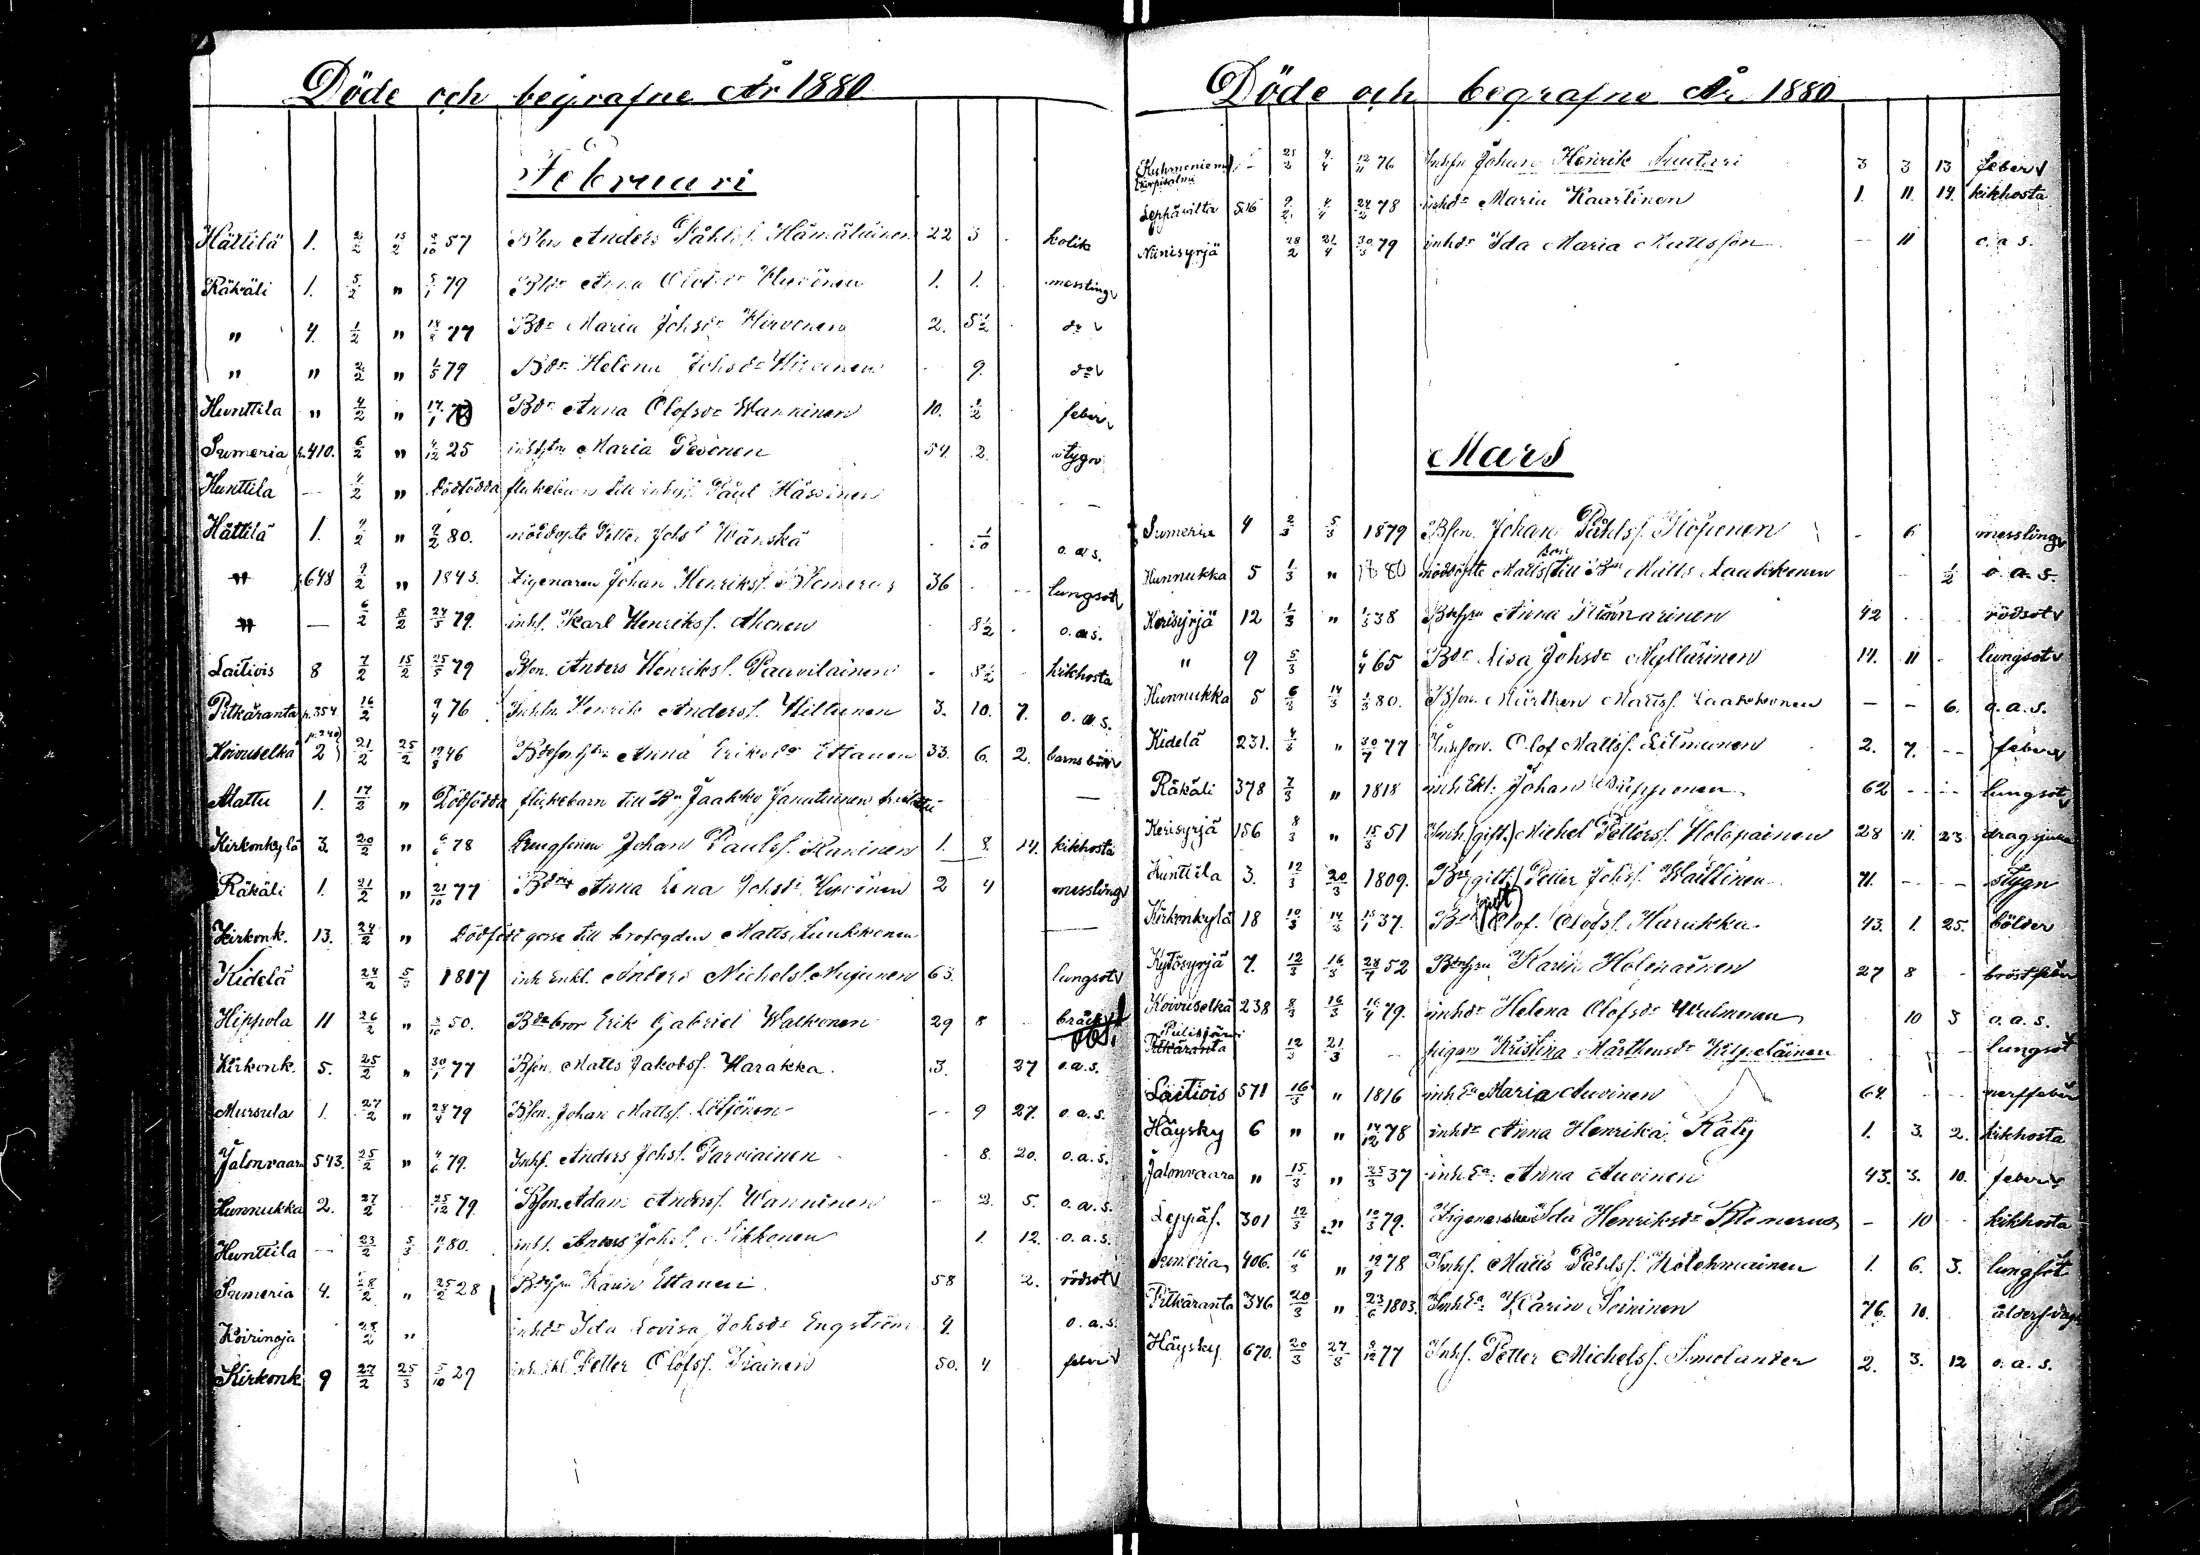 Döde och begrafne År 1880
Februari
Hättilä 1. 2/2 15/2 9/10 57 Bson Anders Påhls. Hämäläinen 22 3 kolik
Räkäli 1. 5/2 " 5/1 79 Bdr Anna Olofsdr Hirvonen 1. 1. messling
" 4. 1/2 " 14/8 77 Bdr Maria Johsdr Hirvonen 2. 5 1/2 do
" " 2/2 " 1/5 79 Bdr Helena Johsdr Hirvonen - 9. do
Hunttila " 4/2 " 17/1 70 Bdr Anna Olofsdr Wanninen 10. 1/2 feber
Sumeria p.410. 6/2 " 4/12 25 Maria Pesonen 54. 2. stygn
Hunttila - 4/2 " Dödfödda flickebarn till Paul Hässinen -
Hättilä 1. 9/2 " 2/2 80. nöddöpte Petter Johs. Wänskä 1/10 o.a.s.
" p.648 9/2 " 1843. Zigenaren Johan Henrikss. Blomerus 36 - - lungsot
" - 6/2 8/2 24/5 79. inhs. Karl Henrikss. Ahonen 8 1/2 o.a.s.
Laitiois 8 7/2 15/2 25/5 79 Bson. Anders Henrikss. Paavilainen - 8 1/2 kikhosta
Pitkäranta p.354 16/2 9/4 76 Inhsn. Henrik Anderss. Hiltunen 3. 10. 7. o.a.s.
Koivuselkä 2 p.240 21/2 25/2 19/8 46 Anna Eriksdr Ettanen 33. 6. 2. barnsbörd
Alattu 1. 17/2 " Dödfödda flickebarn till Bn Jaakko Janatuinen -
Kirkonkylä 3. 20/2 " 6/6 78 Drengsonen Johan Paulss. Kaninen 1. 8. 14. kikhosta
Räkäli 1. 21/2 " 21/10 77 Bdr Anna Lena Johsdr Hirvonen 2 4 messling
Kirkonk. 13. 24/2 " Dödfödt gosse till brofogden Matts Luukkonen -
Kidelä 24/2 5/3 1817 inh Enkl. Anders Michelss. Mujunen 63. lungsot
Hippola 11 26/2 " 8/10 50. Bdebror Erik Gabriel Walkonen 29 8 bråck
obs.
Kirkonk. 5. 25/2 " 30/1 77 Bson. Matts Jakobss. Harakka 3. 27 o.a.s.
Mursula 1. 27/2 " 28/4 79 Bson. Johan Mattss. Lötjönen -- 9 27. o.a.s.
Jalonvaara 543. 25/2 " 4/6 79. Inhs. Anders Johss. Parviainen - 8. 20. o.a.s.
Hunnukka 2. 27/2 25/12 79. Bson. Adam Anderss. Wanninen - 2. 5. o.a.s.
Hunttila - 23/2 5/3 80. inhs. Anders Johss. 1. 12. o.a.s.
Sumeria 4. 28/2 " 25/2 28 Karin Ettanen 58 2. rödsot
Koirinoja 28/2 " inhdr Ida Lovisa Johsdr Engström 4. o.a.s.
Kirkonk 9 27/2 25/3 5/10 29 inh. Ekl. Petter Olofss. 50. 4 feber
Döde och begrafne År 1880
Korpisalmi 21/2 4/4 12/11 76 Inhsn Johan Henrik 3 3 13 feber
Leppäsilta 516 9/2. 4/4 24/2 78 inhdr Maria Kaartinen 1. 11. 14. kikhosta
Niinisyrjä 28/2 21/4 30/3 79 inhdr Ida Maria Mattsson - 11 o.a.s.
Mars
Sumeria 4 2/3 5/3 1879 Bson. Johan Påhlss. - 6 messling
Hunnukka 5 1/3 " 1880 nöddöpte Matts son till Bn Matts Laakkonen 1/2 o.a.s.
Kerisyrjä 12 1/3 " 1/3 38 Anna 42 rödsot
" 9 5/3 6/4 65 Bdr Lisa Johsdr Myllärinen 14. 11 - lungsot
Hunnukka 5 6/3 14/3 1/3 80. Bson. Mårthen Mattss. Laakkonen - - 6. o.a.s.
Kidelä 231. 4/3 " 30/7 77 Inhson. Olof Mattss. 2. 7. -- feber
Räkäli 378 7/3 " 1818 inh Ekl: Johan 62 - - lungsot
Kerisyrjä 156 8/3 " 15/3 51 Inh. (gift.) Michel Petterss. Holopainen 28 11. 23 dragsjuka
Hunttila 3. 12/3 20/3 1809. Bn (gift.) Petter Johss. Waittinen 71. - - stygn
Kirkonkylä 18 10/3 14/3 15/1 37. Bn (gift) Olof Olofss. Harakka 43. 1. 25. bölder
Kytösyrjä 7. 12/3 16/3 28/7 52 Karin Holopainen 27 8 - bröstfeber
Koivuselkä 238 8/3 16/3 16/4 79. inhdr Helena Olofsdr 10 3 o.a.s.
Pitkäranta 12/3 21/3 - pigan Kristina Mårthensdr Kilpeläinen lungsot
Laitiois 571 16/3 " 1816 inh Ea Maria Auvinen 64. - - nerffeber
Häysky 6 " " 14/12 78 inhdr Anna Henrika Räty 1. 3. 2. kikhosta
Jalonvaara " 15/3 " 25/3 37 inh.Ea: Anna Auvinen 43. 3. 10. feber
Leppäs. 301 12/3 " 10/5 79. Zigenerska Ida Henriksdr Blomerus - 10 - kikhosta
Sumeria 406. 16/3 " 19/9 78 Inhs. Matts Påhlss. Kolehmainen 1. 6. 3. lungsot
Pitkäranta 346 20/3 " 23/6 1803. Inh Ea: Karin Soininen 76. 10. ålderdom
Häysky 670. 20/3 27/3 8/12 77 Inhs. Petter Michelss. Smolander 2. 3. 12 o.a.s.